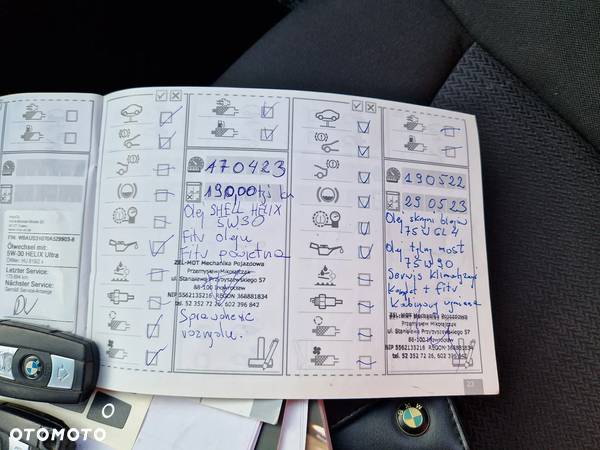 FIN: WBAUS31070A529903-8
Ölwechsel mit:
5W-30 HELIX Ultra
Letzter Service:
Nächster Service:
170423
190.000 tyś km
Olej SHELL HELIX
5W30
Filtr oleju
Filtr powietrza
ZEL-MOT Mechanika Pojazdowa
Przemysław Mikołajczak
ul. Stanisława Przybyszewskiego 57
88-100 Inowrocław
NIP 5562135216 REGON 368881834
tel. 52 352 72 26, 602 396 842
Sprawdzenie
rozrządu.
190522
290523
Olej skrzyni biegów
75W GL4
Olej tylny most
75W90
Serwis klimatyzacji
+ filtr
Kabinowy wymiana
ZEL-MOT Mechanika Pojazdowa
Przemysław Mikołajczak
ul. Stanisława Przybyszewskiego 57
88-100 Inowrocław
NIP 5562135216 REGON 368881834
tel. 52 352 72 26, 602 396 842
23
BMW
OTOMOTO